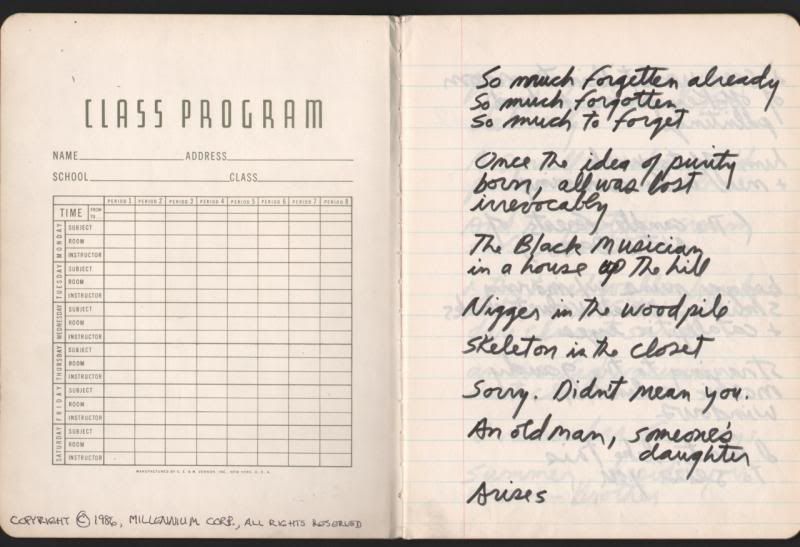 CLASS PROGRAM
NAME ADDRESS
SCHOOL CLASS
PERIOD 1 PERIOD 2 PERIOD 3 PERIOD 4 PERIOD 5 PERIOD 6 PERIOD 7 PERIOD 8
TIME FROM TO
MONDAY
SUBJECT
ROOM
INSTRUCTOR
TUESDAY
SUBJECT
ROOM
INSTRUCTOR
WEDNESDAY
SUBJECT
ROOM
INSTRUCTOR
THURSDAY
SUBJECT
ROOM
INSTRUCTOR
FRIDAY
SUBJECT
ROOM
INSTRUCTOR
SATURDAY
SUBJECT
ROOM
INSTRUCTOR
MANUFACTURED BY INC. NEW YORK, U.S.A.
COPYRIGHT © 1986, MILLENNIUM CORP., ALL RIGHTS RESERVED
So much forgotten already
So much forgotten
So much to forget
Once the idea of purity
born, all was lost
irrevocably
The Black Musician
in a house up the hill
Nigger in the woodpile
Skeleton in the closet
Sorry. Didnt mean you.
An old man, someone's
daughter
Arises